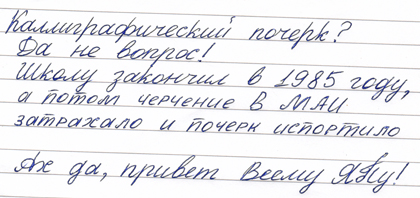 Каллиграфический почерк?
Да не вопрос!
Школу закончил в 1985 году,
а потом черчение в МАИ
затрахало и почерк испортило
Ах да, привет Всему ЯПу!